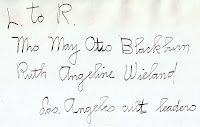 L. to R.
Mrs May Otis Blackburn
Ruth Angeline Wieland
Los Angeles cult leaders